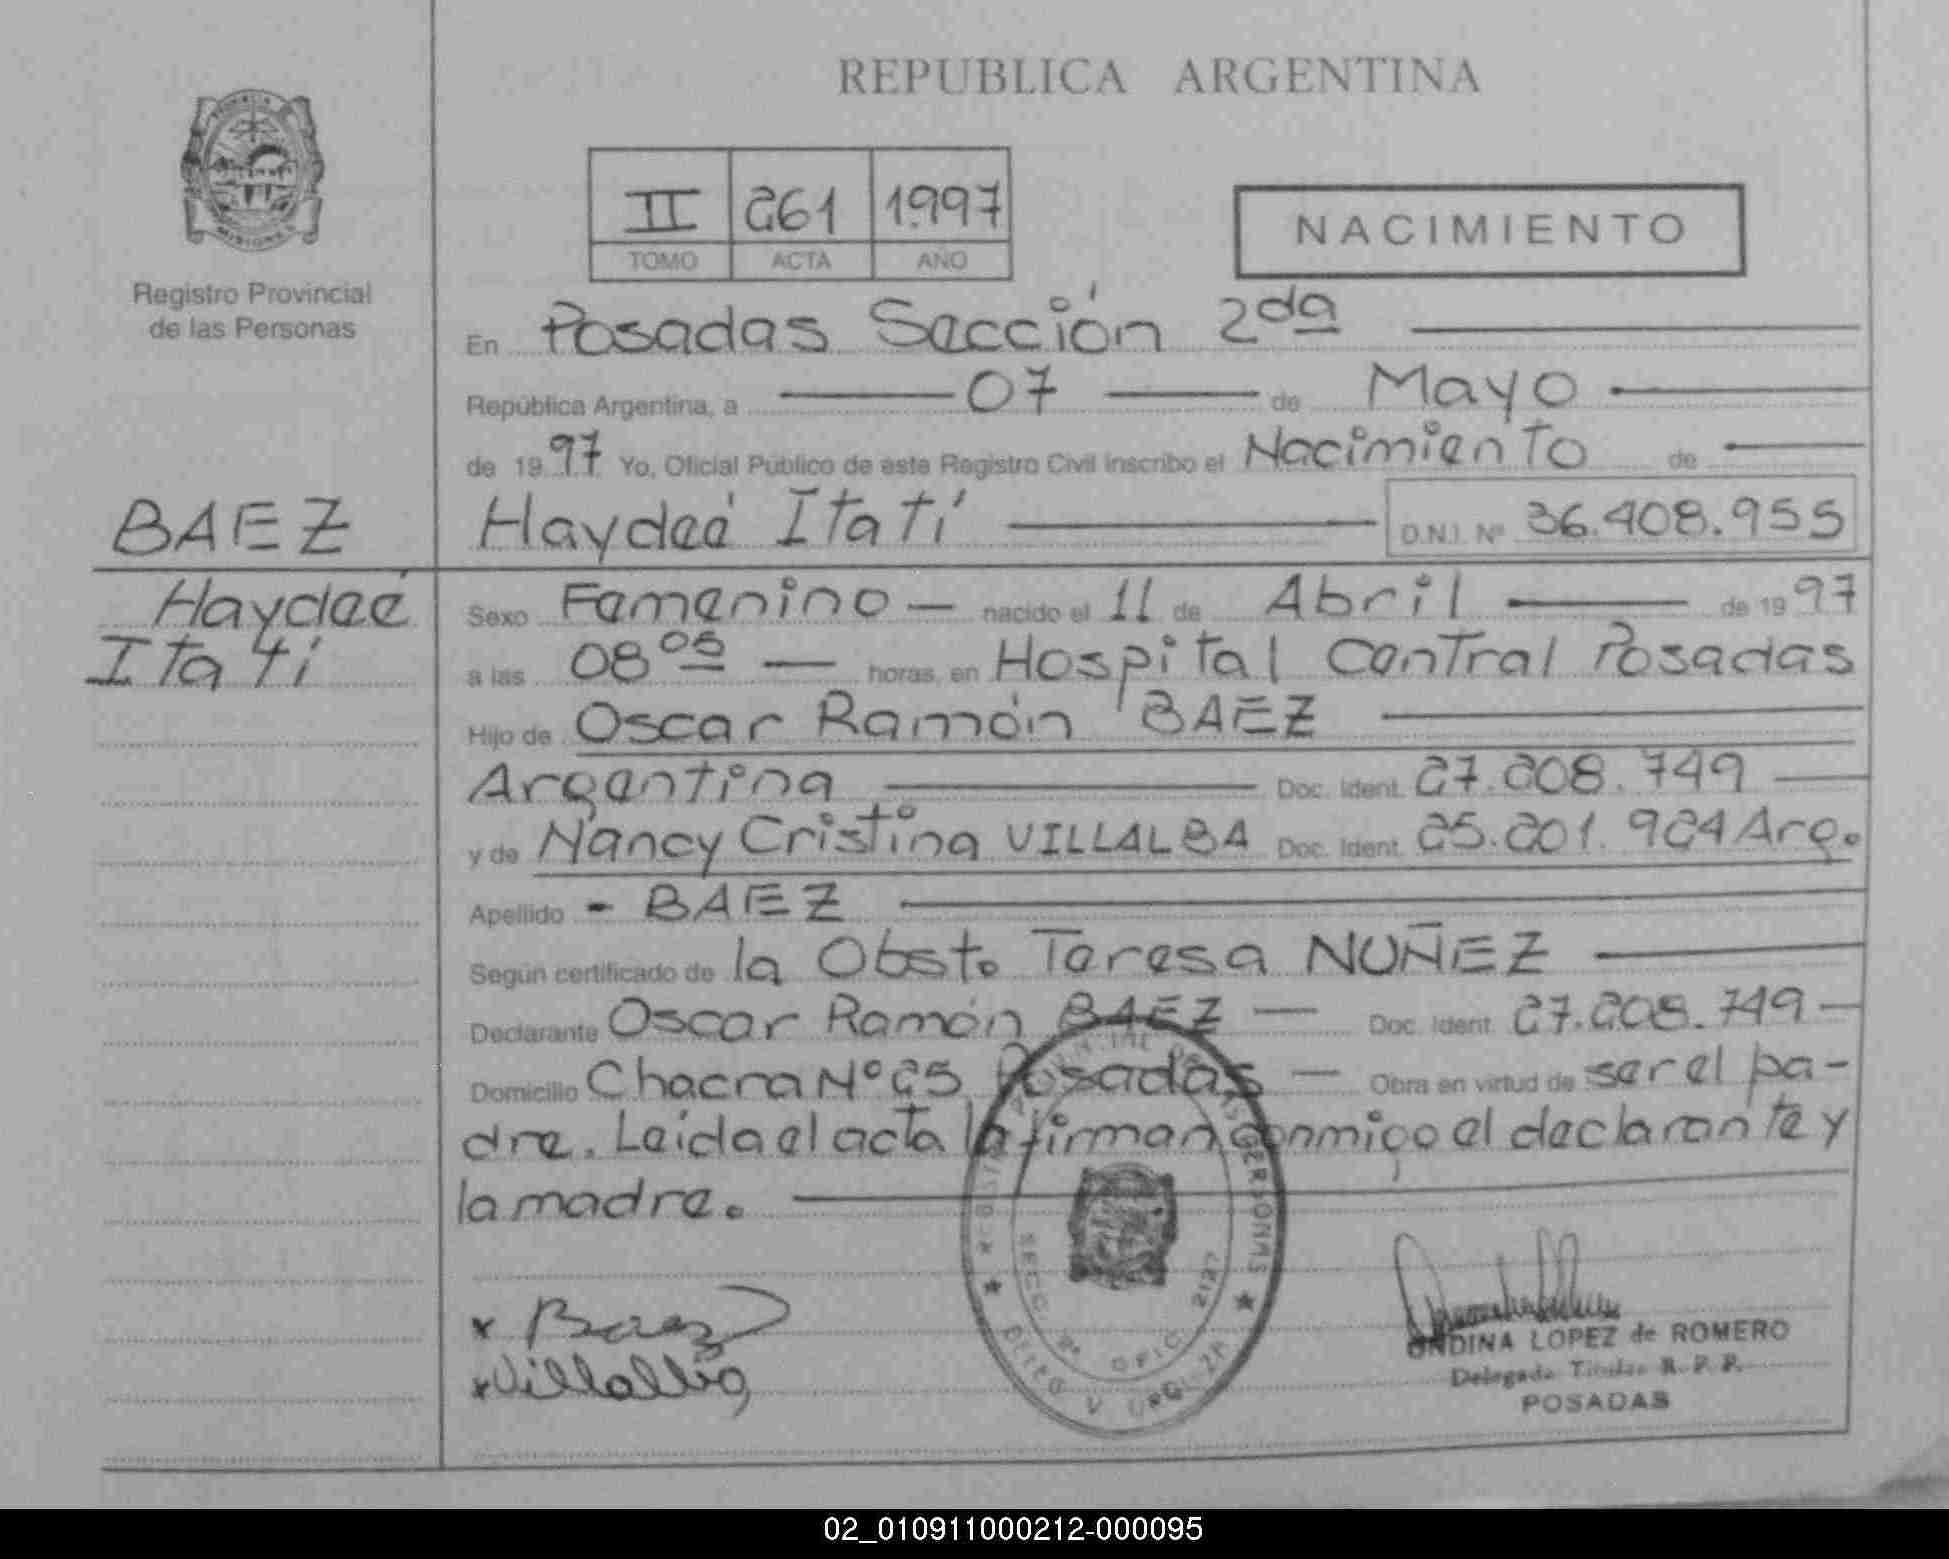 REPUBLICA ARGENTINA
MISIONES
Registro Provincial
de las Personas
II 261 1997
TOMO ACTA AÑO
NACIMIENTO
En Posadas Sección 2da
República Argentina, a 07 de Mayo
de 1997 Yo, Oficial Público de este Registro Civil inscribo el Nacimiento de
BAEZ
Haydeé Itatí D.N.I. Nº 36.408.955
Haydeé
Itatí
Sexo Femenino nacido el 11 de Abril de 1997
a las 08 05 horas, en Hospital Central Posadas
Hijo de Oscar Ramón BAEZ
Argentina Doc. Ident. 27.208.749
y de Nancy Cristina VILLALBA Doc. Ident. 25.201.924 Arg.
Apellido - BAEZ
Según certificado de la Obst. Teresa NUÑEZ
Declarante Oscar Ramón BAEZ Doc. Ident. 27.208.749
Domicilio Chacra Nº 25 Posadas Obra en virtud de ser el pa-
dre. Leída el acta la firman conmigo el declarante y
la madre.
x Baez
x Villalba
ONDINA LOPEZ de ROMERO
Delegada Titular R. P. P.
POSADAS
02_010911000212-000095